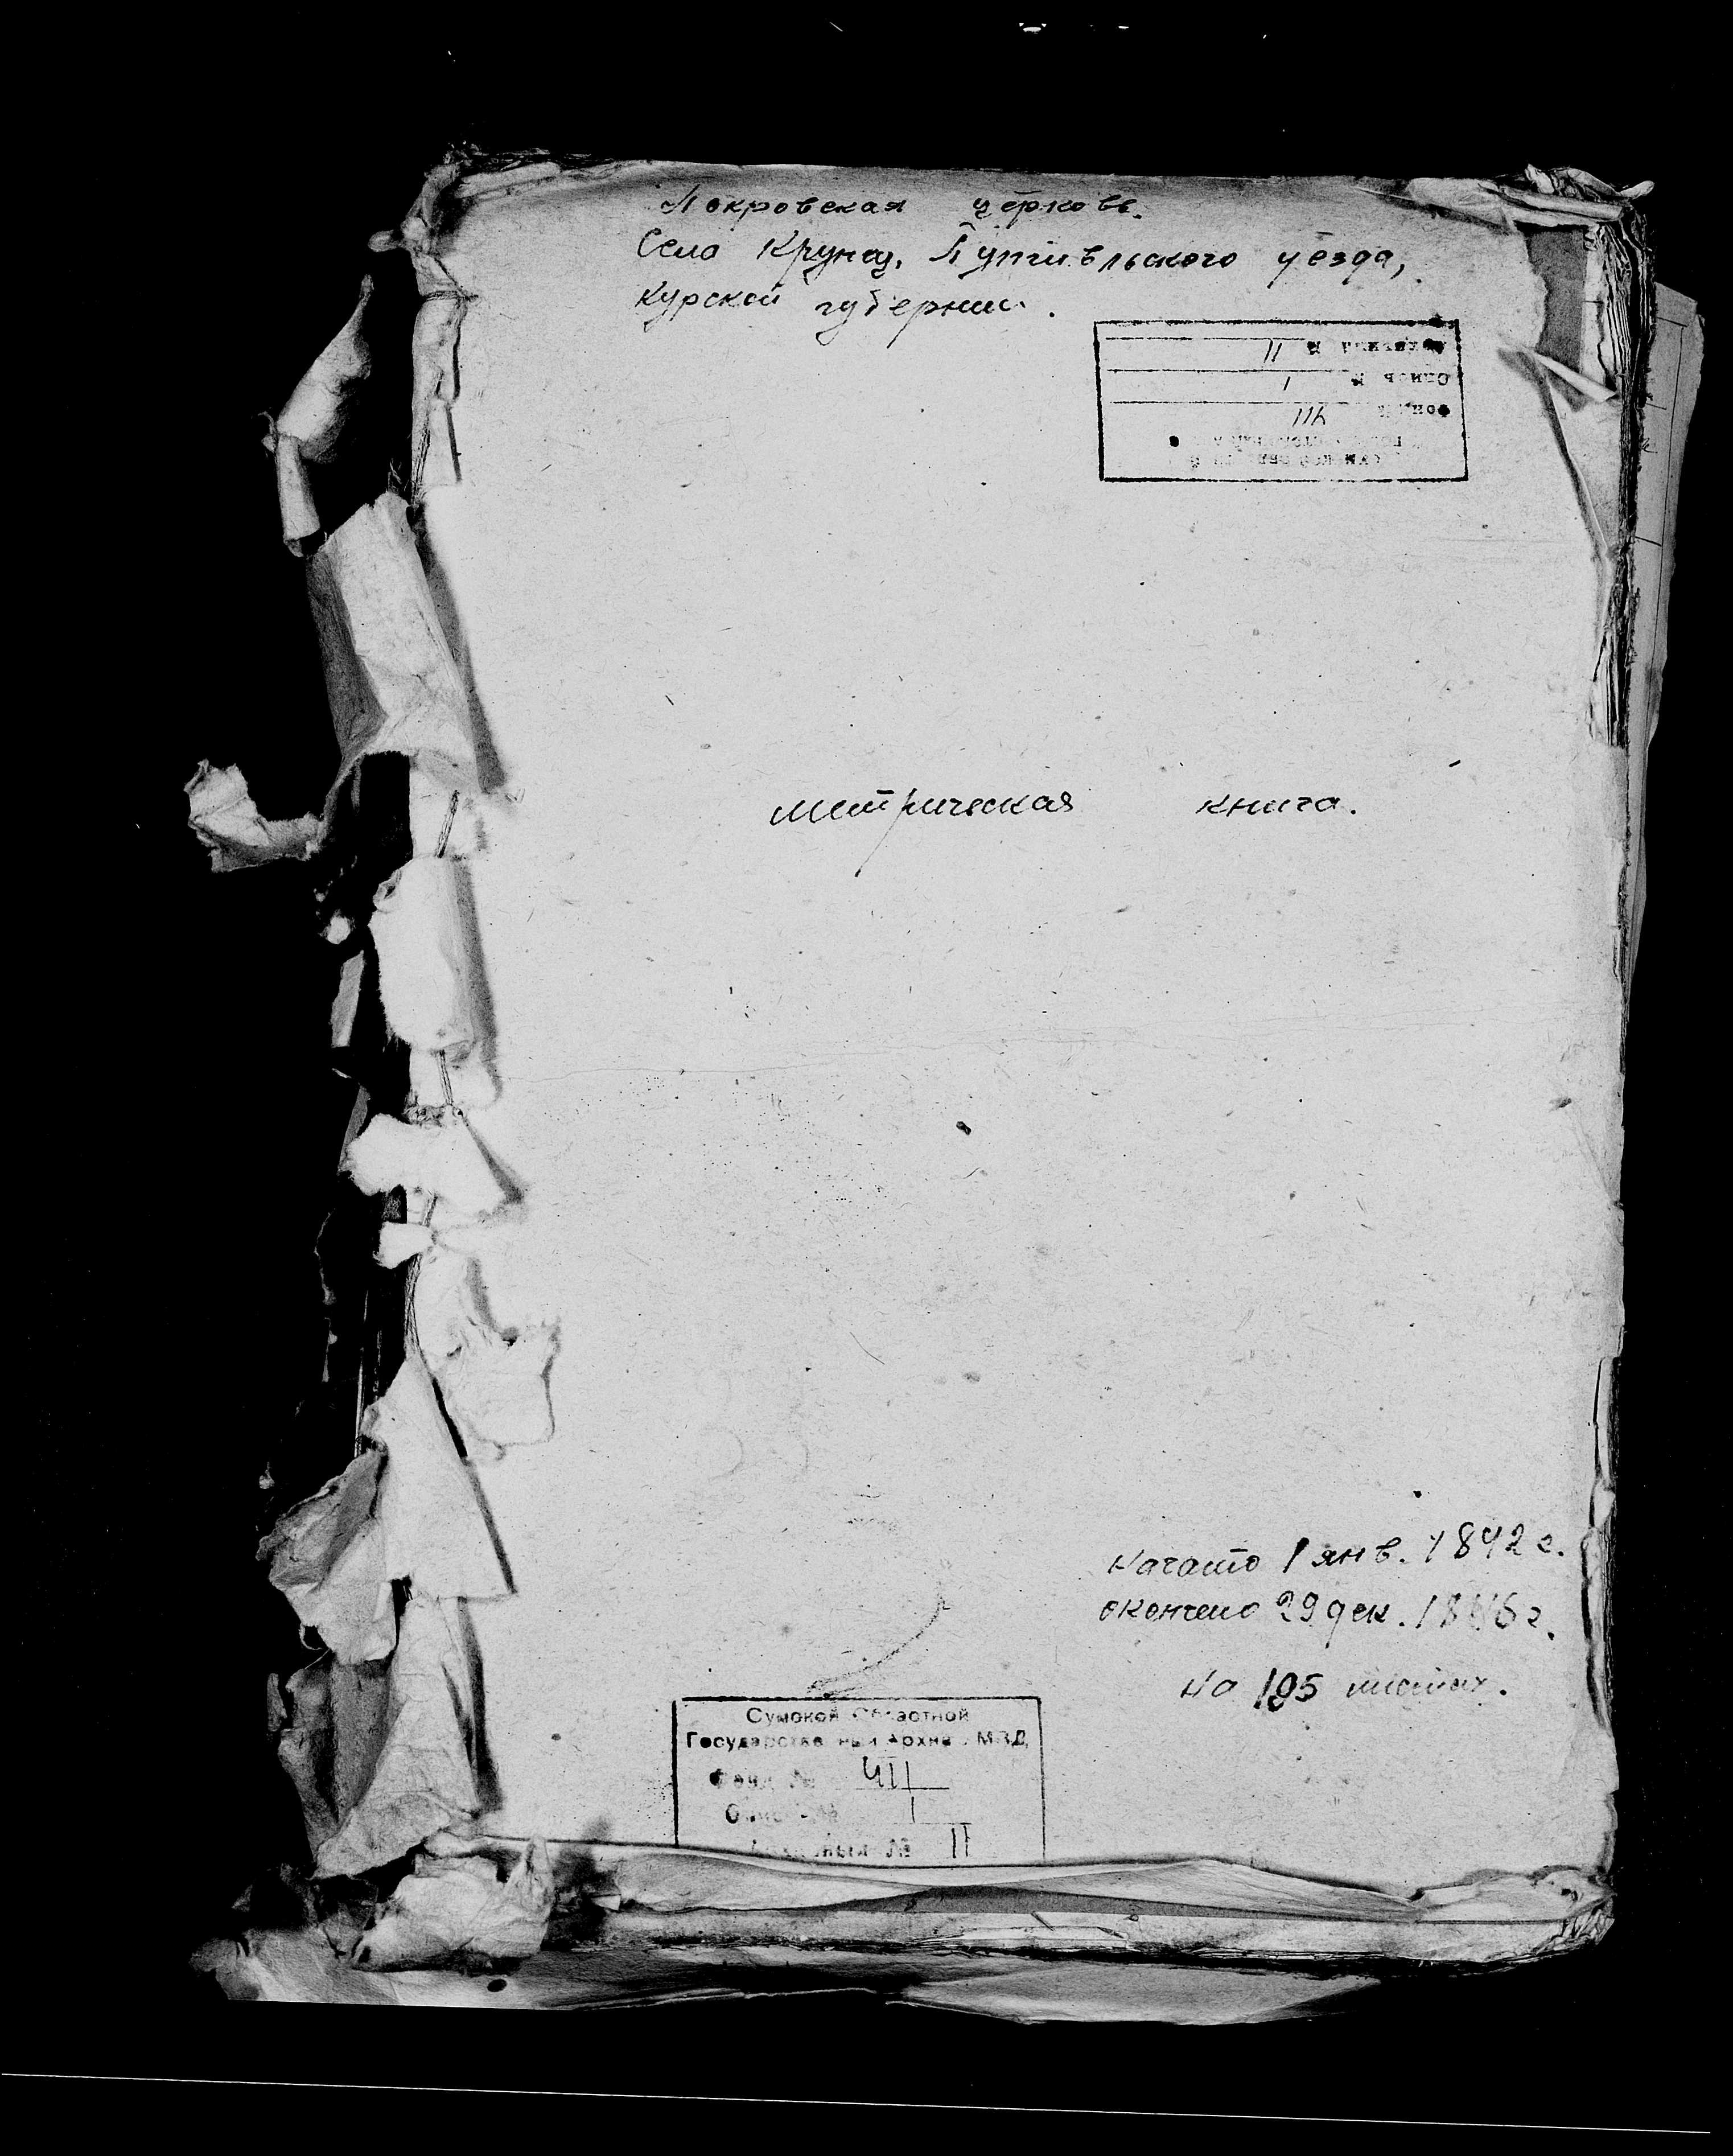 Покровская церковь.
Село Крупец, Путивльского уезда,
Курской губернии.
метрическая книга.
Начато 1 янв. 1842 г.
окончено 29 дек. 1846 г.
на 195 листах.
Сумской Областной
Государственный Архив МВД
Фонд №
Опись № 1
№ 11